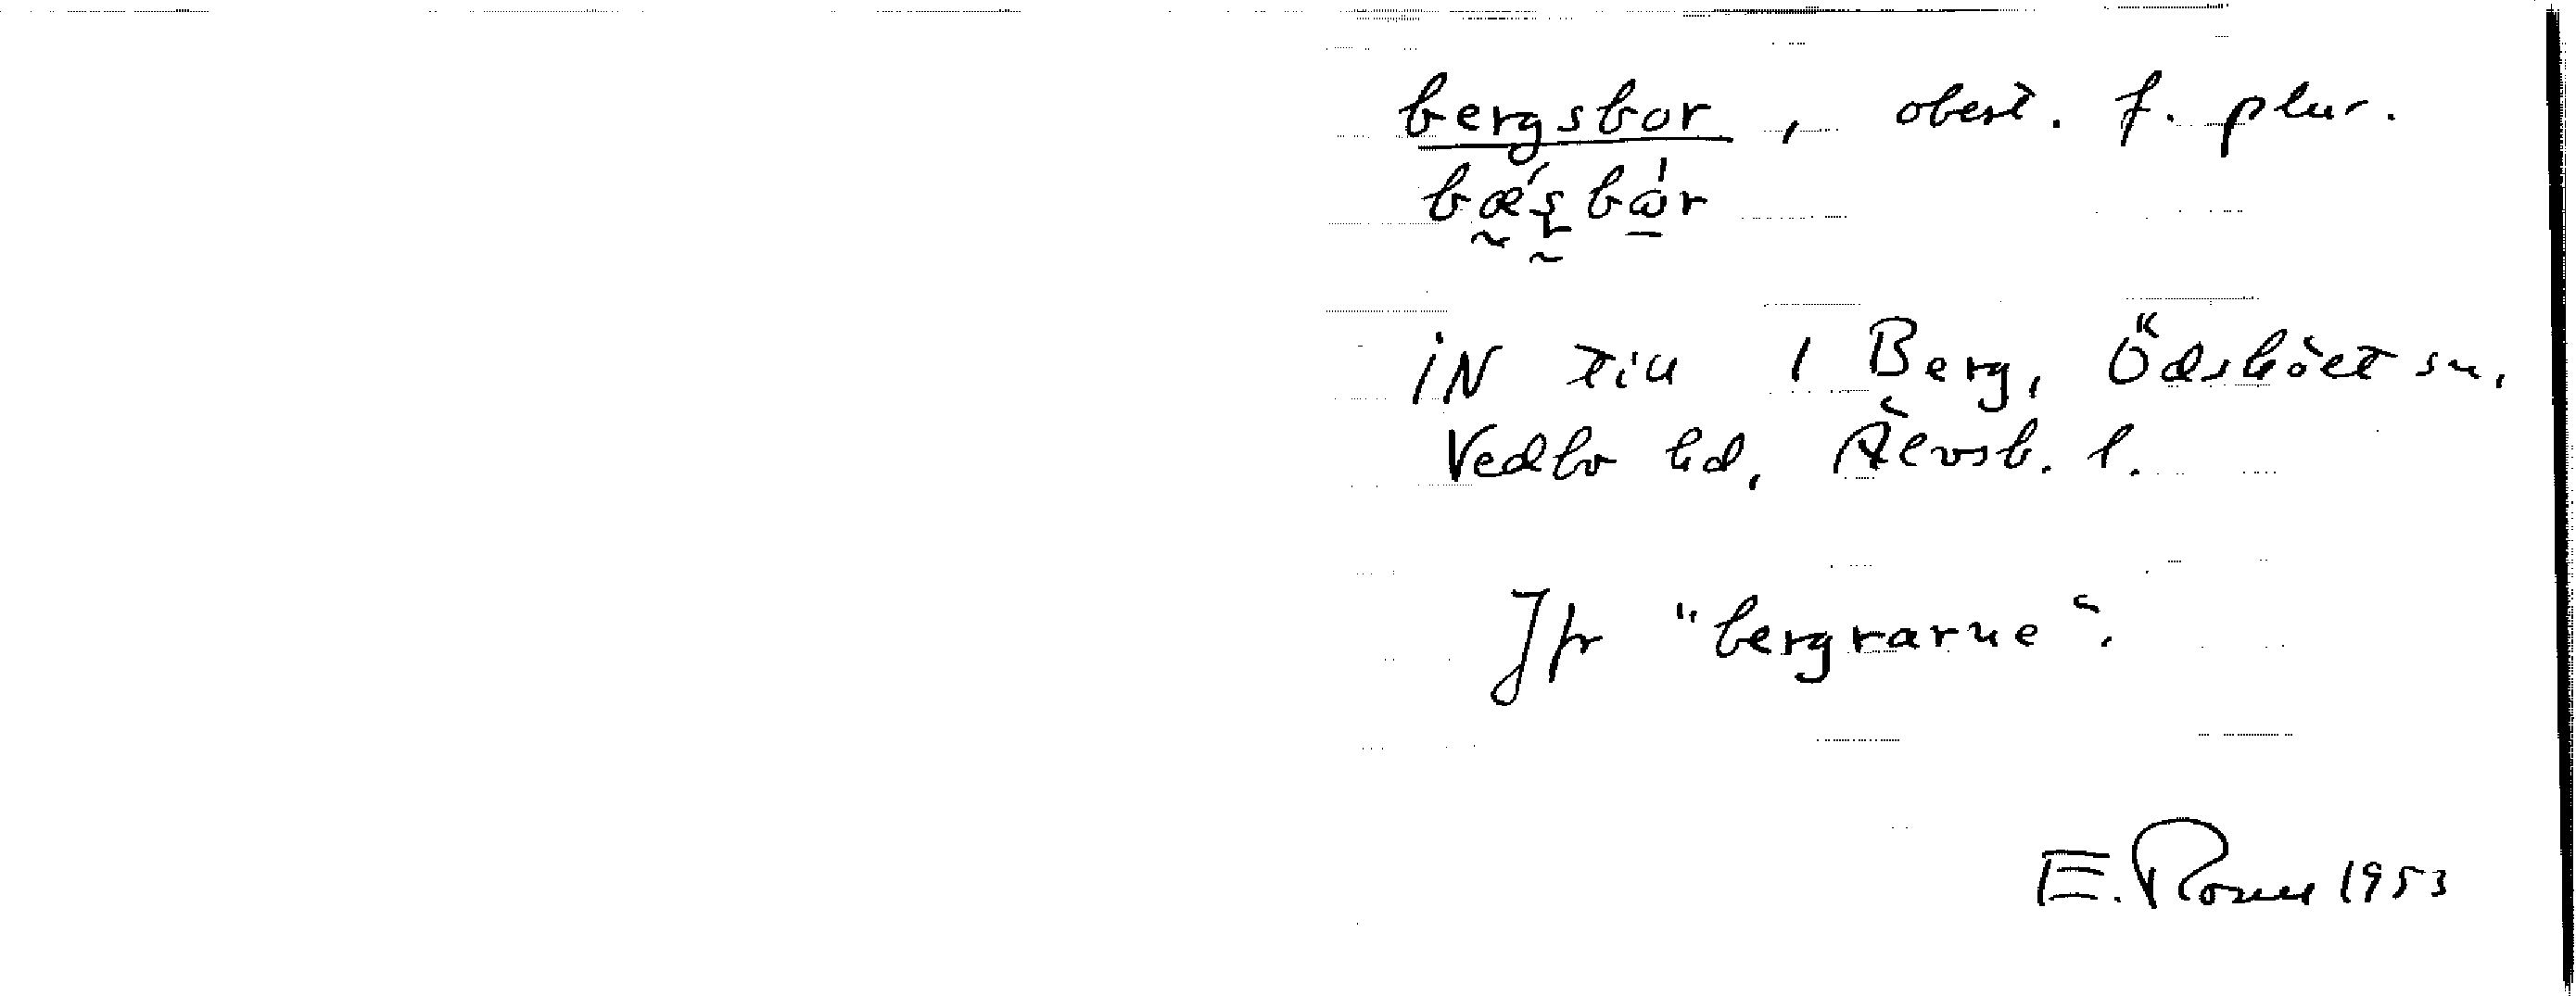 bergsbor, obest. f. plur.
bǽ̰ʂ̰bω̱̍r
IN till 1 Berg, Ödskölt sn,
Vedbo hd, Älvsb. l.
Jfr "bergrarne".
E. Rosell 1953